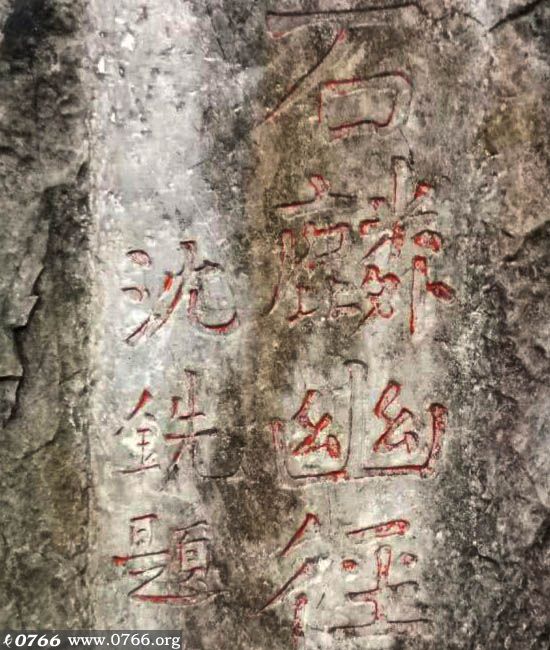 石麟幽徑
沈銑題
0766 www.0766.org